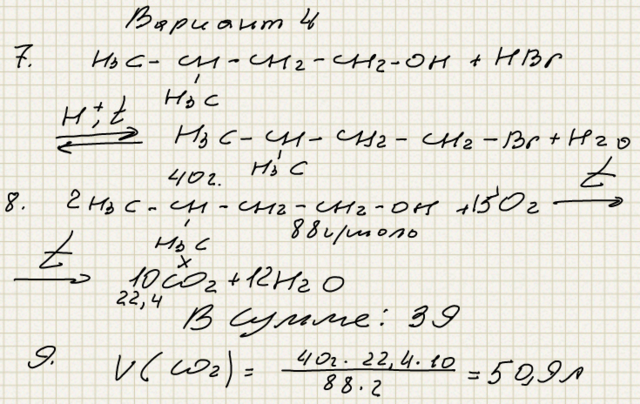 Вариант 4
7. H3C - CH - CH2 - CH2 - OH + HBr
H3C
H+, t
H3C - CH - CH2 - CH2 - Br + H2O
H3C
40г.
8. 2H3C - CH - CH2 - CH2 - OH + 15O2 t
H3C 88г/моль
t x
10CO2 + 12H2O
22,4
В сумме: 39
9. V(CO2) = 40г. 22,4. 10 / 88. 2 = 50,9л